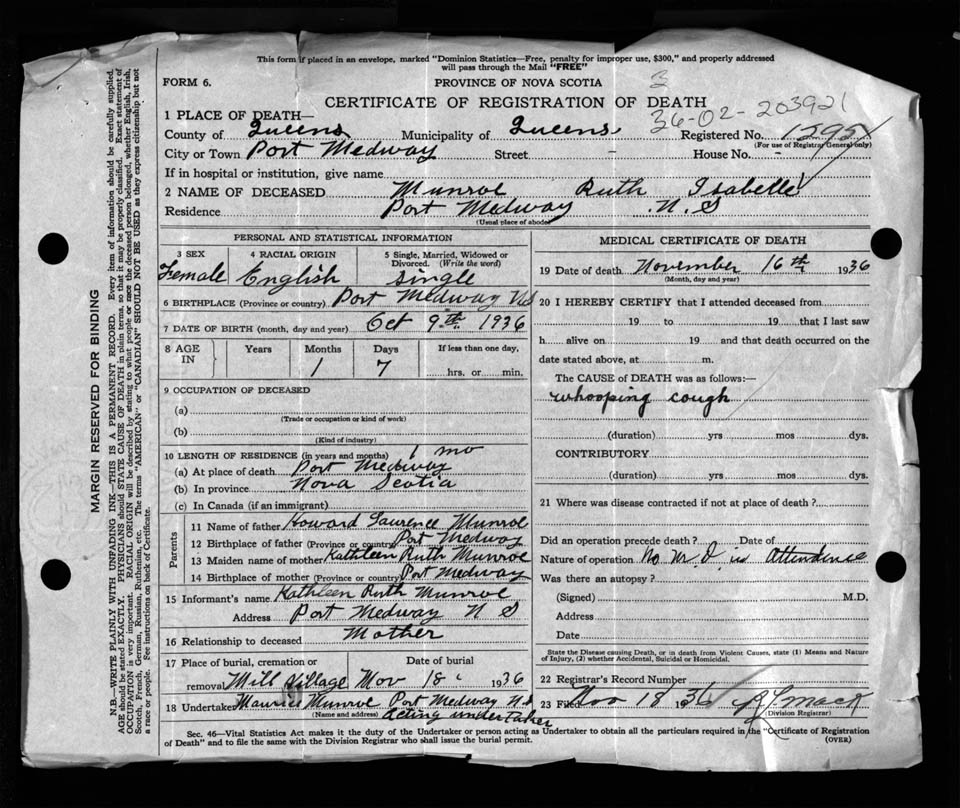 This form if placed in an envelope, marked "Dominion Statistics—Free, penalty for improper use, $300," and properly addressed
will pass through the Mail "FREE"
FORM 6. PROVINCE OF NOVA SCOTIA 3
CERTIFICATE OF REGISTRATION OF DEATH
36-02-203921
1 PLACE OF DEATH—
County of Queens Municipality of Queens Registered No. 1295
(For use of Registrar General only)
City or Town Port Medway Street - House No. -
If in hospital or institution, give name
2 NAME OF DECEASED Munroe Ruth Isabelle
Residence Port Medway N. S
(Usual place of abode)
PERSONAL AND STATISTICAL INFORMATION
3 SEX 4 RACIAL ORIGIN 5 Single, Married, Widowed or
Divorced. (Write the word)
Female English Single
6 BIRTHPLACE (Province or country) Port Medway NS
7 DATE OF BIRTH (month, day and year) Oct 9th 1936
8 AGE IN Years Months Days If less than one day,
1 7 hrs. or min.
9 OCCUPATION OF DECEASED
(a)
(Trade or occupation or kind of work)
(b)
(Kind of industry)
10 LENGTH OF RESIDENCE (in years and months) 1 mo
(a) At place of death Port Medway
(b) In province Nova Scotia
(c) In Canada (if an immigrant)
Parents
11 Name of father Howard Laurence Munroe
12 Birthplace of father (Province or country) Port Medway
13 Maiden name of mother Kathleen Ruth Munroe
14 Birthplace of mother (Province or country) Port Medway
15 Informant's name Kathleen Ruth Munroe
Address Port Medway N S
16 Relationship to deceased Mother
17 Place of burial, cremation or Date of burial
removal Mill Village Nov 18 1936
18 Undertaker Maurice Munroe Port Medway N.S
(Name and address) acting undertaker
MEDICAL CERTIFICATE OF DEATH
19 Date of death November 16th 1936
(Month, day and year)
20 I HEREBY CERTIFY that I attended deceased from
19 to 19 that I last saw
h alive on 19 and that death occurred on the
date stated above, at m.
The CAUSE of DEATH was as follows:—
whooping cough
(duration) yrs mos dys.
CONTRIBUTORY
(duration) yrs mos dys.
21 Where was disease contracted if not at place of death?
Did an operation precede death? Date of
Nature of operation No M.D. in Attendence
Was there an autopsy?
(Signed) M.D.
Address
Date
State the Disease causing Death, or in death from Violent Causes, state (1) Means and Nature
of Injury, (2) whether Accidental, Suicidal or Homicidal.
22 Registrar's Record Number
23 Filed Nov 18 1936 Mack
(Division Registrar)
Sec. 46—Vital Statistics Act makes it the duty of the Undertaker or person acting as Undertaker to obtain all the particulars required in the "Certificate of Registration
of Death" and to file the same with the Division Registrar who shall issue the burial permit. (OVER)
MARGIN RESERVED FOR BINDING
N.B.—WRITE PLAINLY WITH UNFADING INK—THIS IS A PERMANENT RECORD. Every item of information should be carefully supplied.
AGE should be stated EXACTLY. PHYSICIANS should STATE CAUSE OF DEATH in plain terms, so that it may be properly classified. Exact statement of
OCCUPATION is very important. RACIAL ORIGIN will be described by stating to what people or race the deceased person belonged, whether English, Irish,
Scotch, French, German, Russian, Ruthenian, etc. The terms "AMERICAN" or "CANADIAN" SHOULD NOT BE USED as they express citizenship but not
a race or people. See instructions on back of Certificate.